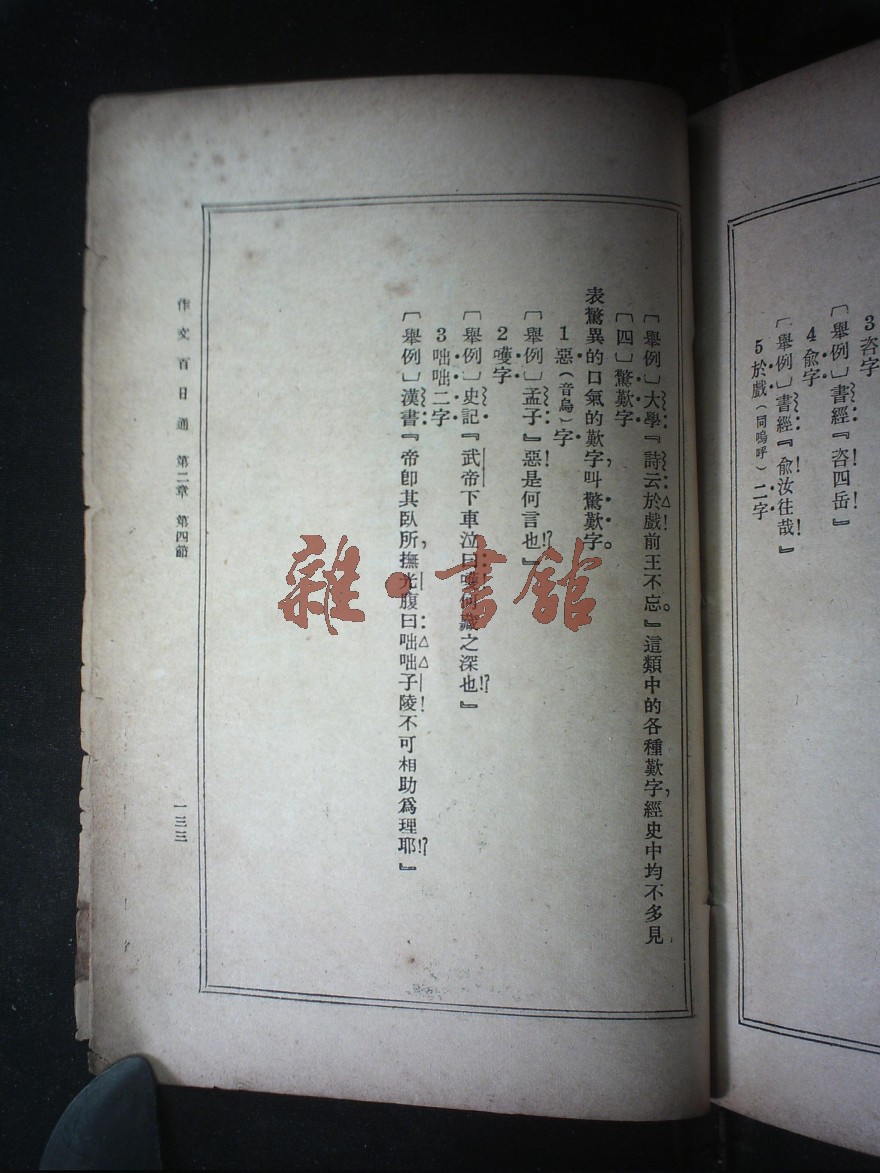 3 咨字
〔舉例〕書經『咨四岳！』
4 俞字
〔舉例〕書經『俞汝往哉！』
5 於戲（同嗚呼）二字
〔舉例〕大學『詩云於戲！前王不忘。』這類中的各種歎字，經史中均不多見
〔四〕驚歎字
表驚異的口氣的歎字，叫驚歎字。
1 惡（音烏）字
〔舉例〕孟子『惡！是何言也!?』
2 嚄字
〔舉例〕史記『武帝下車泣曰嚄！何藏之深也!?』
3 咄咄二字
〔舉例〕漢書『帝卽其臥所，撫光腹曰咄咄子陵！不可相助爲理耶!?』
作文百日通 第二章 第四節
一三三
雜·書館